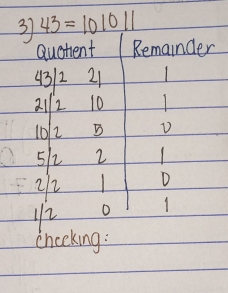 3) 43 = 101011
Quotient Remainder
43/2 21 1
21/2 10 1
10/2 5 0
5/2 2 1
2/2 1 0
1/2 0 1
Checking: